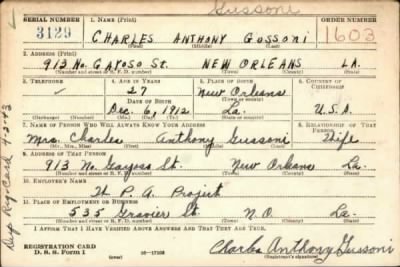 Gussoni
SERIAL NUMBER 1. NAME (Print) ORDER NUMBER
3129 CHARLES ANTHONY GOSSONI 1603
(First) (Middle) (Last)
2. ADDRESS (Print)
913 No. GAYOSO St. NEW ORLEANS LA.
(Number and street or R. F. D. number) (Town) (County) (State)
3. TELEPHONE 4. AGE IN YEARS 5. PLACE OF BIRTH 6. COUNTRY OF CITIZENSHIP
27 New Orleans
DATE OF BIRTH (Town or county)
Dec. 6, 1912 La. U.S.A.
(Exchange) (Number) (Mo.) (Day) (Yr.) (State or country)
7. NAME OF PERSON WHO WILL ALWAYS KNOW YOUR ADDRESS 8. RELATIONSHIP OF THAT PERSON
Mrs. Charles Anthony Gussoni Wife
(Mr., Mrs., Miss) (First) (Middle) (Last)
9. ADDRESS OF THAT PERSON
913 No. Gayoso St. New Orleans La.
(Number and street or R. F. D. number) (Town) (County) (State)
10. EMPLOYER'S NAME
W. P. A. Project
11. PLACE OF EMPLOYMENT OR BUSINESS
535 Gravier St. N.O. La.
(Number and street or R. F. D. number) (Town) (County) (State)
I AFFIRM THAT I HAVE VERIFIED ABOVE ANSWERS AND THAT THEY ARE TRUE.
REGISTRATION CARD
D. S. S. Form 1 (over) Charles Anthony Gussoni
(Registrant's signature)
Dup Reg Card 4-2-43